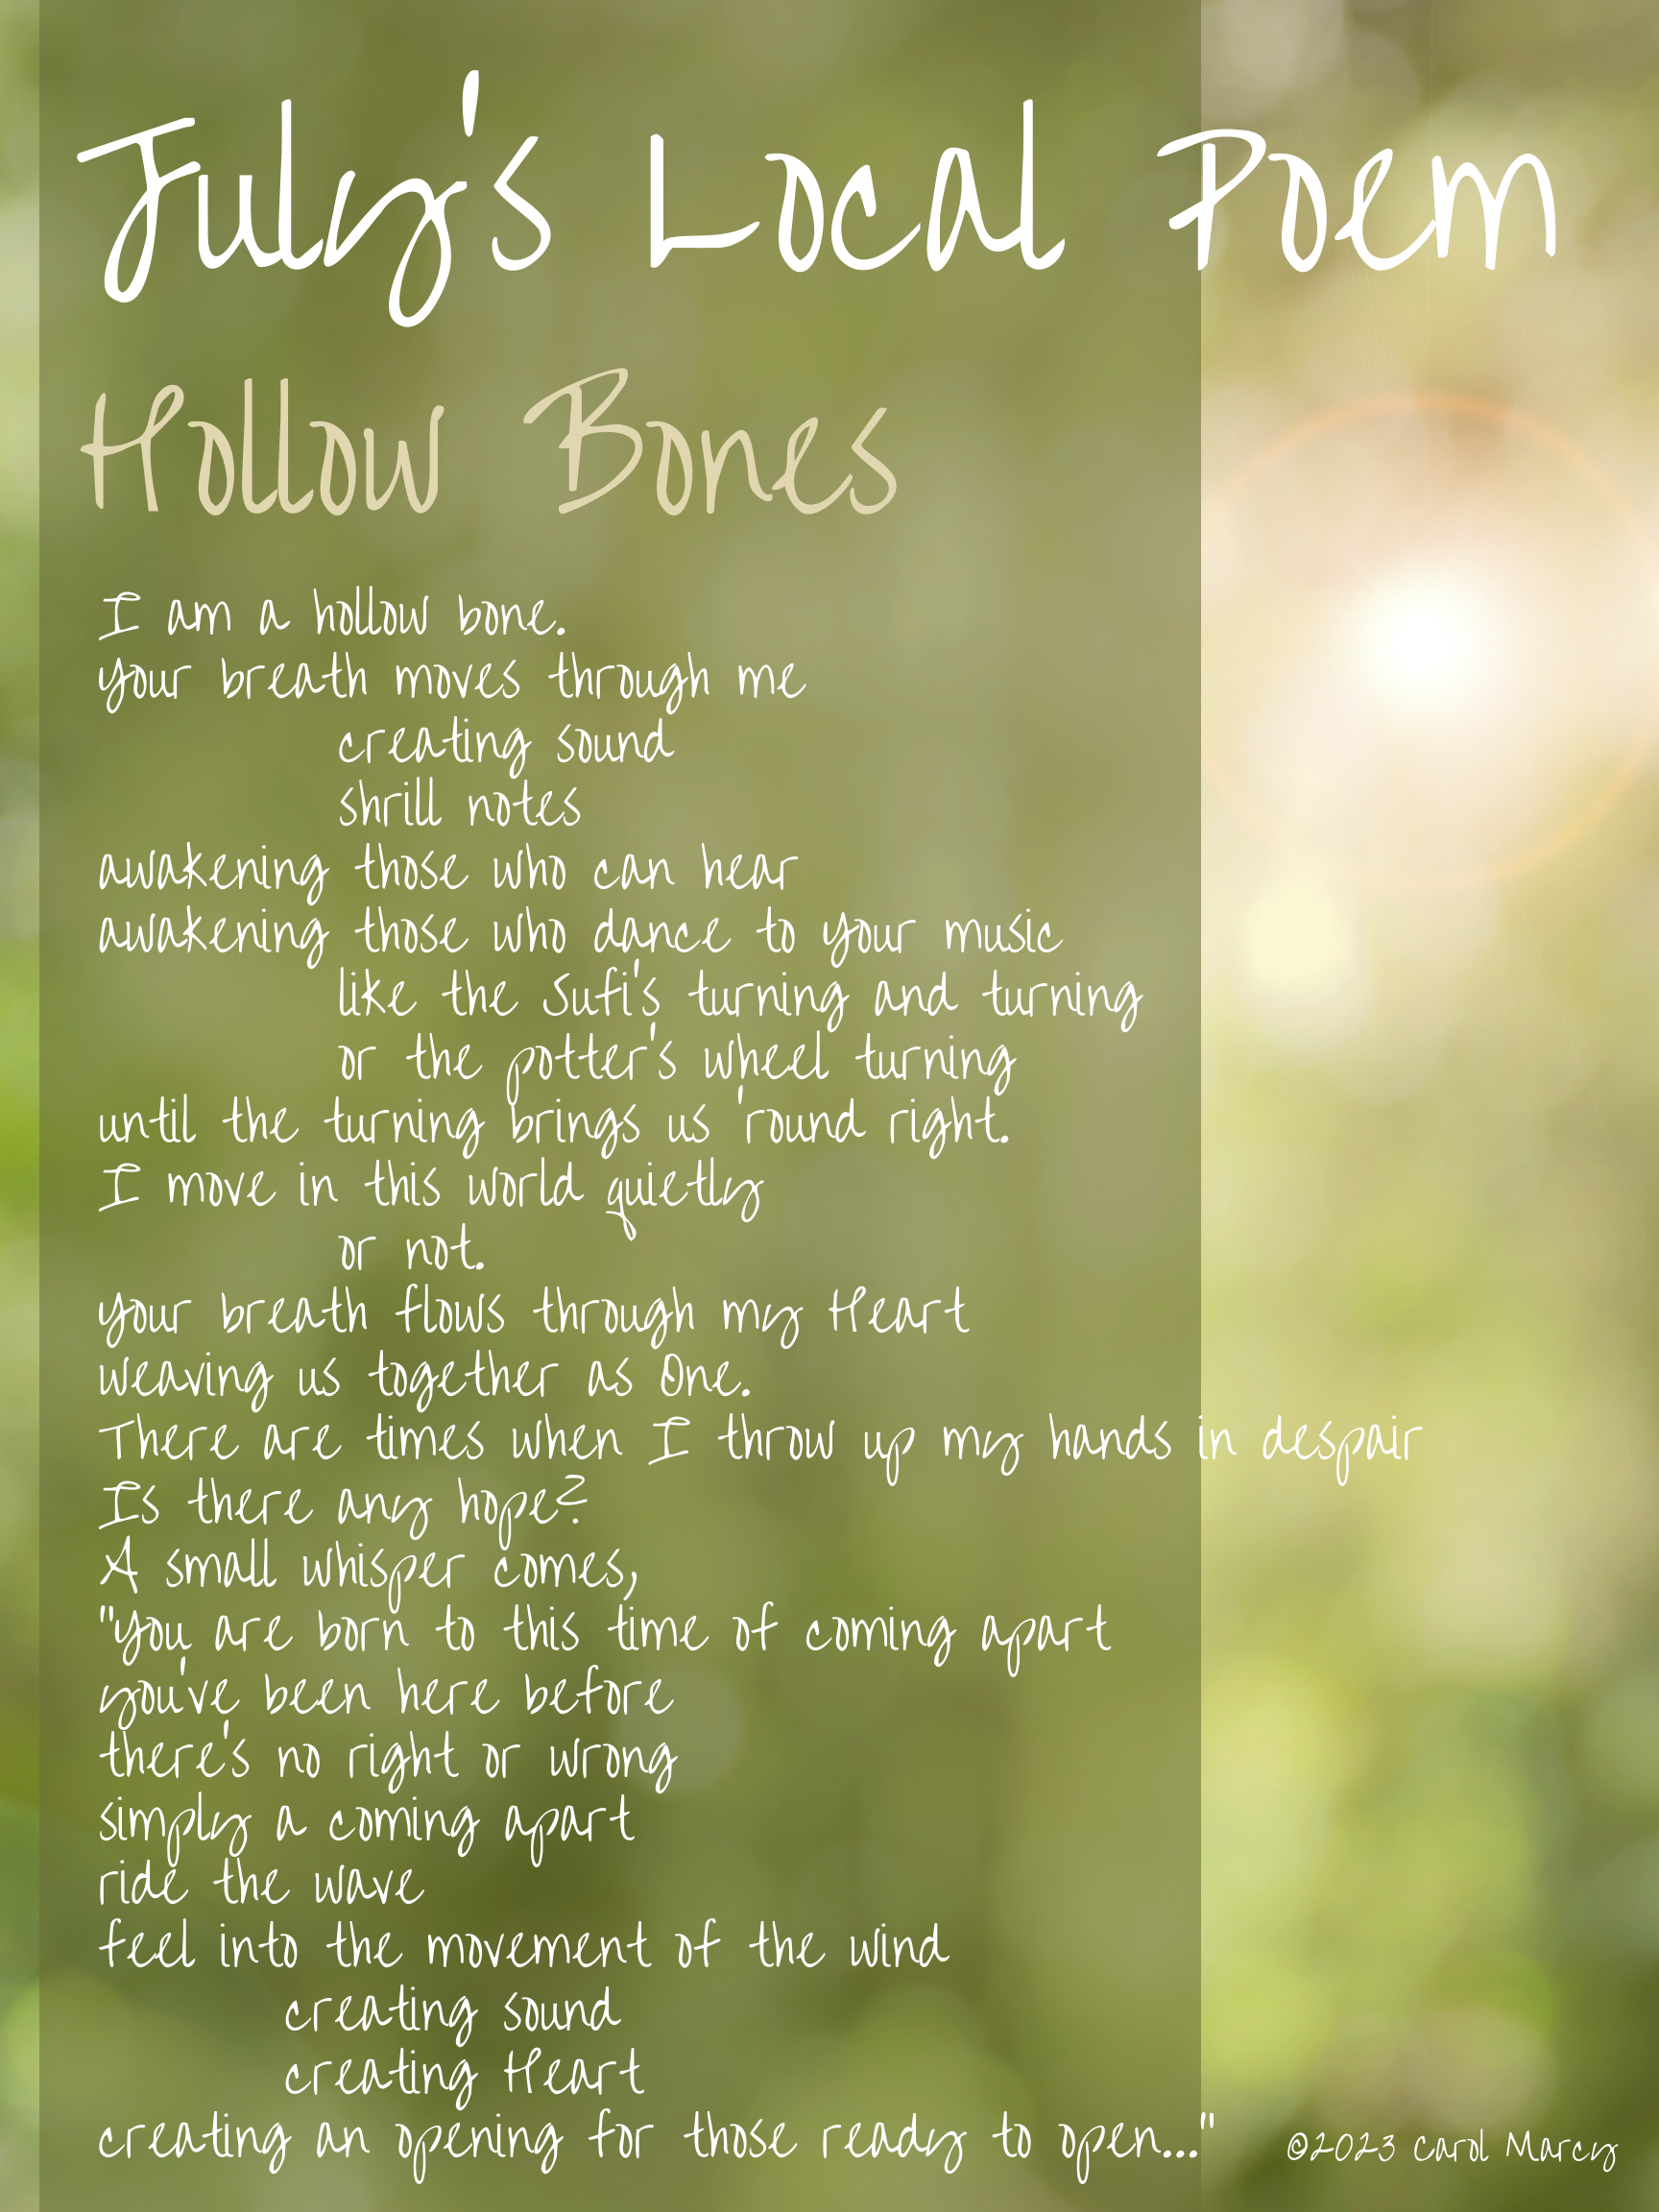 July's Local Poem
Hollow Bones
I am a hollow bone.
Your breath moves through me
creating sound
shrill notes
awakening those who can hear
awakening those who dance to Your music
like the Sufi's turning and turning
or the potter's wheel turning
until the turning brings us 'round right.
I move in this world quietly
or not.
Your breath flows through my Heart
weaving us together as One.
There are times when I throw up my hands in despair
Is there any hope?
A small whisper comes,
"You are born to this time of coming apart
you've been here before
there's no right or wrong
simply a coming apart
ride the wave
feel into the movement of the wind
creating sound
creating Heart
creating an opening for those ready to open..."
©2023 Carol Marcy